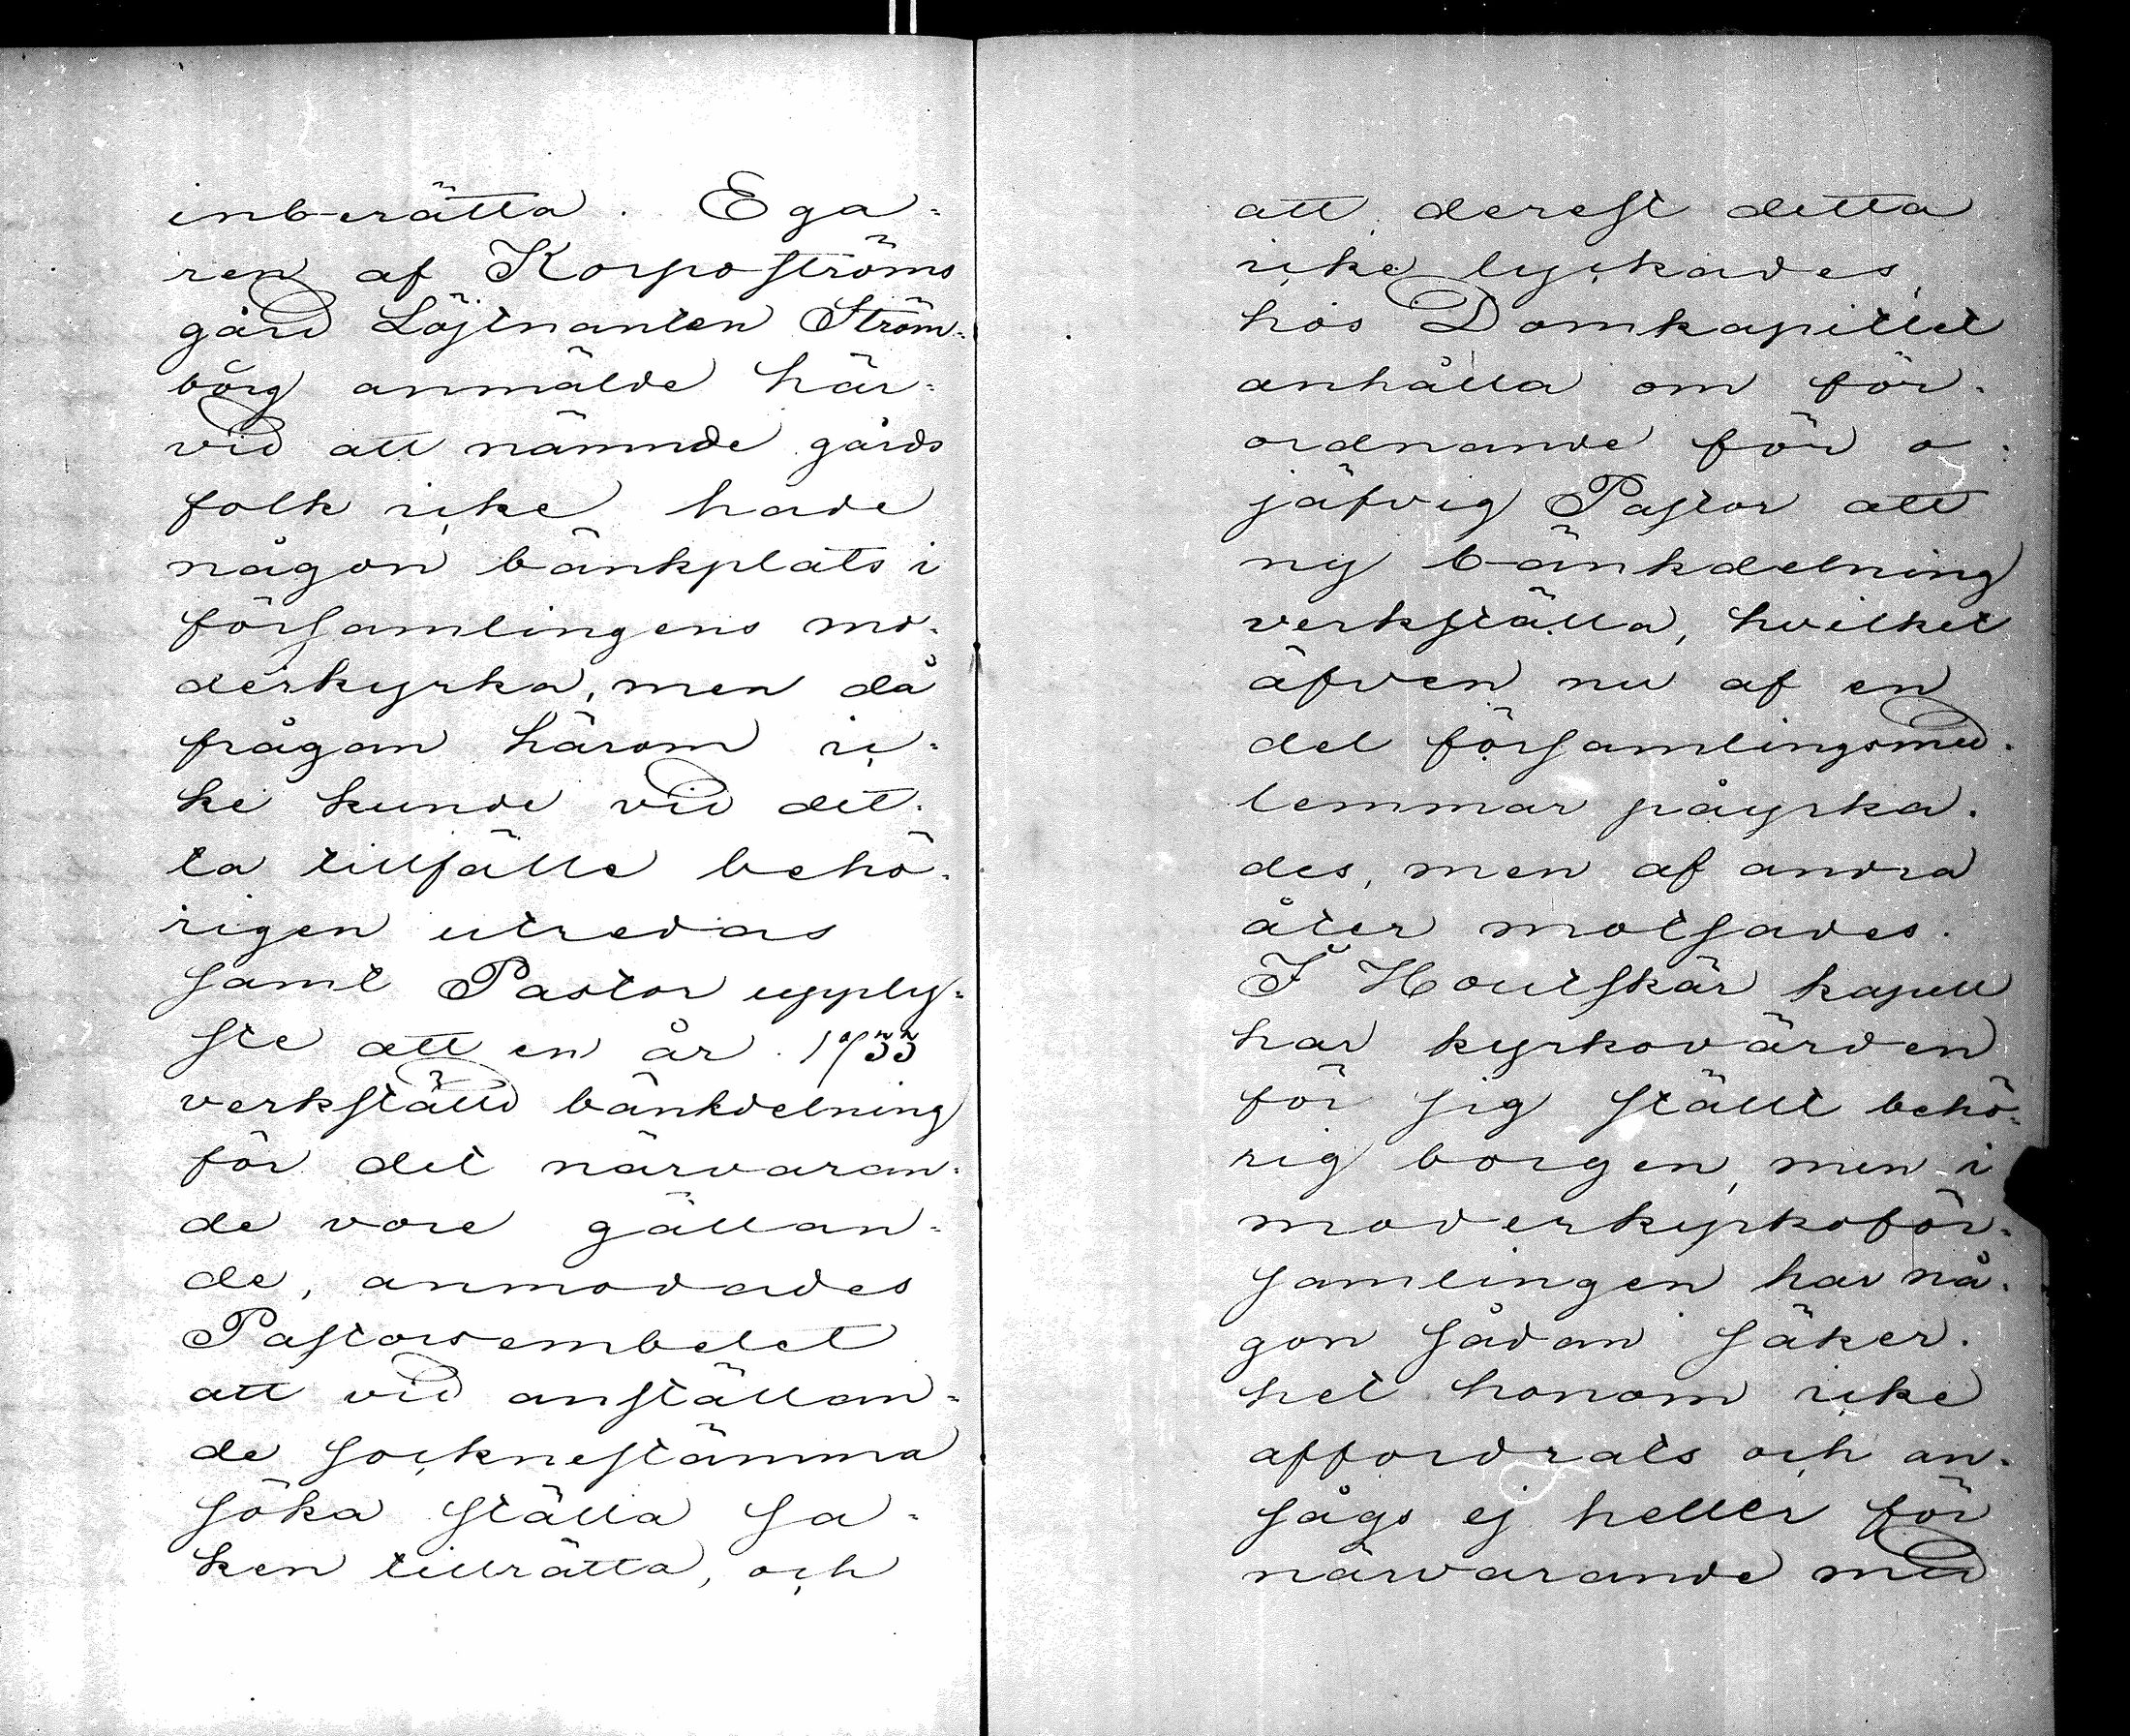 inberätta. Ega-
ren af Korpoströms
gård Löjtnanten Ström-
borg anmälde här-
vid att nämnde gårds
folk icke hade
någon bänkplats i
församlingens mo-
derkyrka, men då
frågan härom ic-
ke kunde vid det-
ta tillfälle behö-
rigen utredas
samt Pastor upply-
ste att en år 1733
verkställd bänkdelning
för det närvaran-
de vore gällan-
de, anmodades
Pastorsembetet
att vid anställan-
de socknestämma
söka ställa sa-
ken tillrätta, och
att, derest detta
icke lyckades,
hos Domkapitlet
anhålla om för-
ordnande för o-
jäfvig Pastor att
ny bänkdelning
verkställa, hvilket
äfven nu af en
del församlingsmed-
lemmar påyrka-
des, men af andra
åter motsades.
I Houtskär kapell
har kyrkovärden
för sig ställt behö-
rig borgen, men i
moderkyrkoför-
samlingen har nå-
gon sådan säker-
het honom icke
affordrats och an-
sågs ej heller för
närvarande med